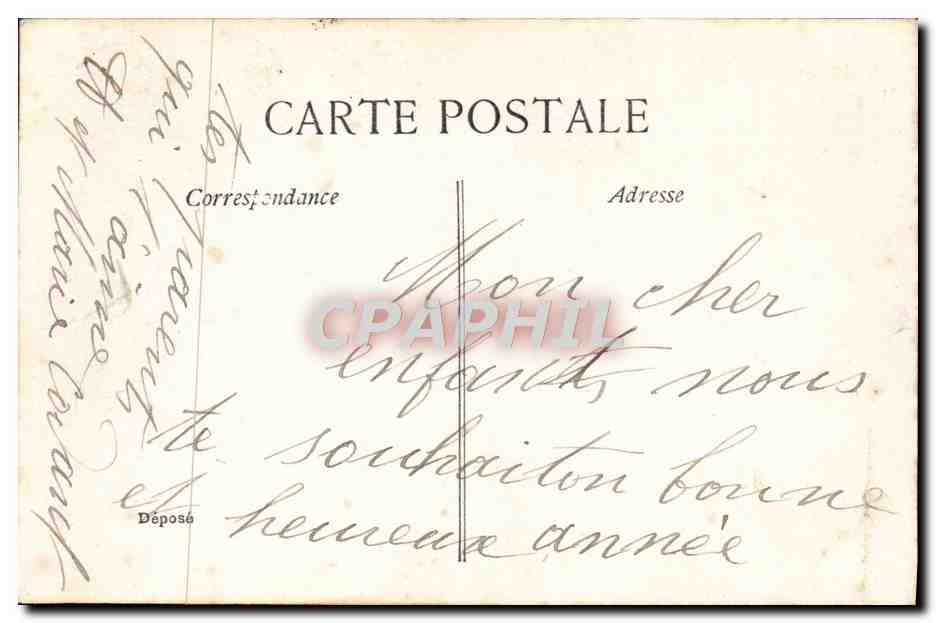 CARTE POSTALE
Correspondance
Adresse
Mon cher
enfant, nous
te souhaiton bonne
et heureux année
Déposé
tes parents
qui t'aime
et Marie
CPAPHIL